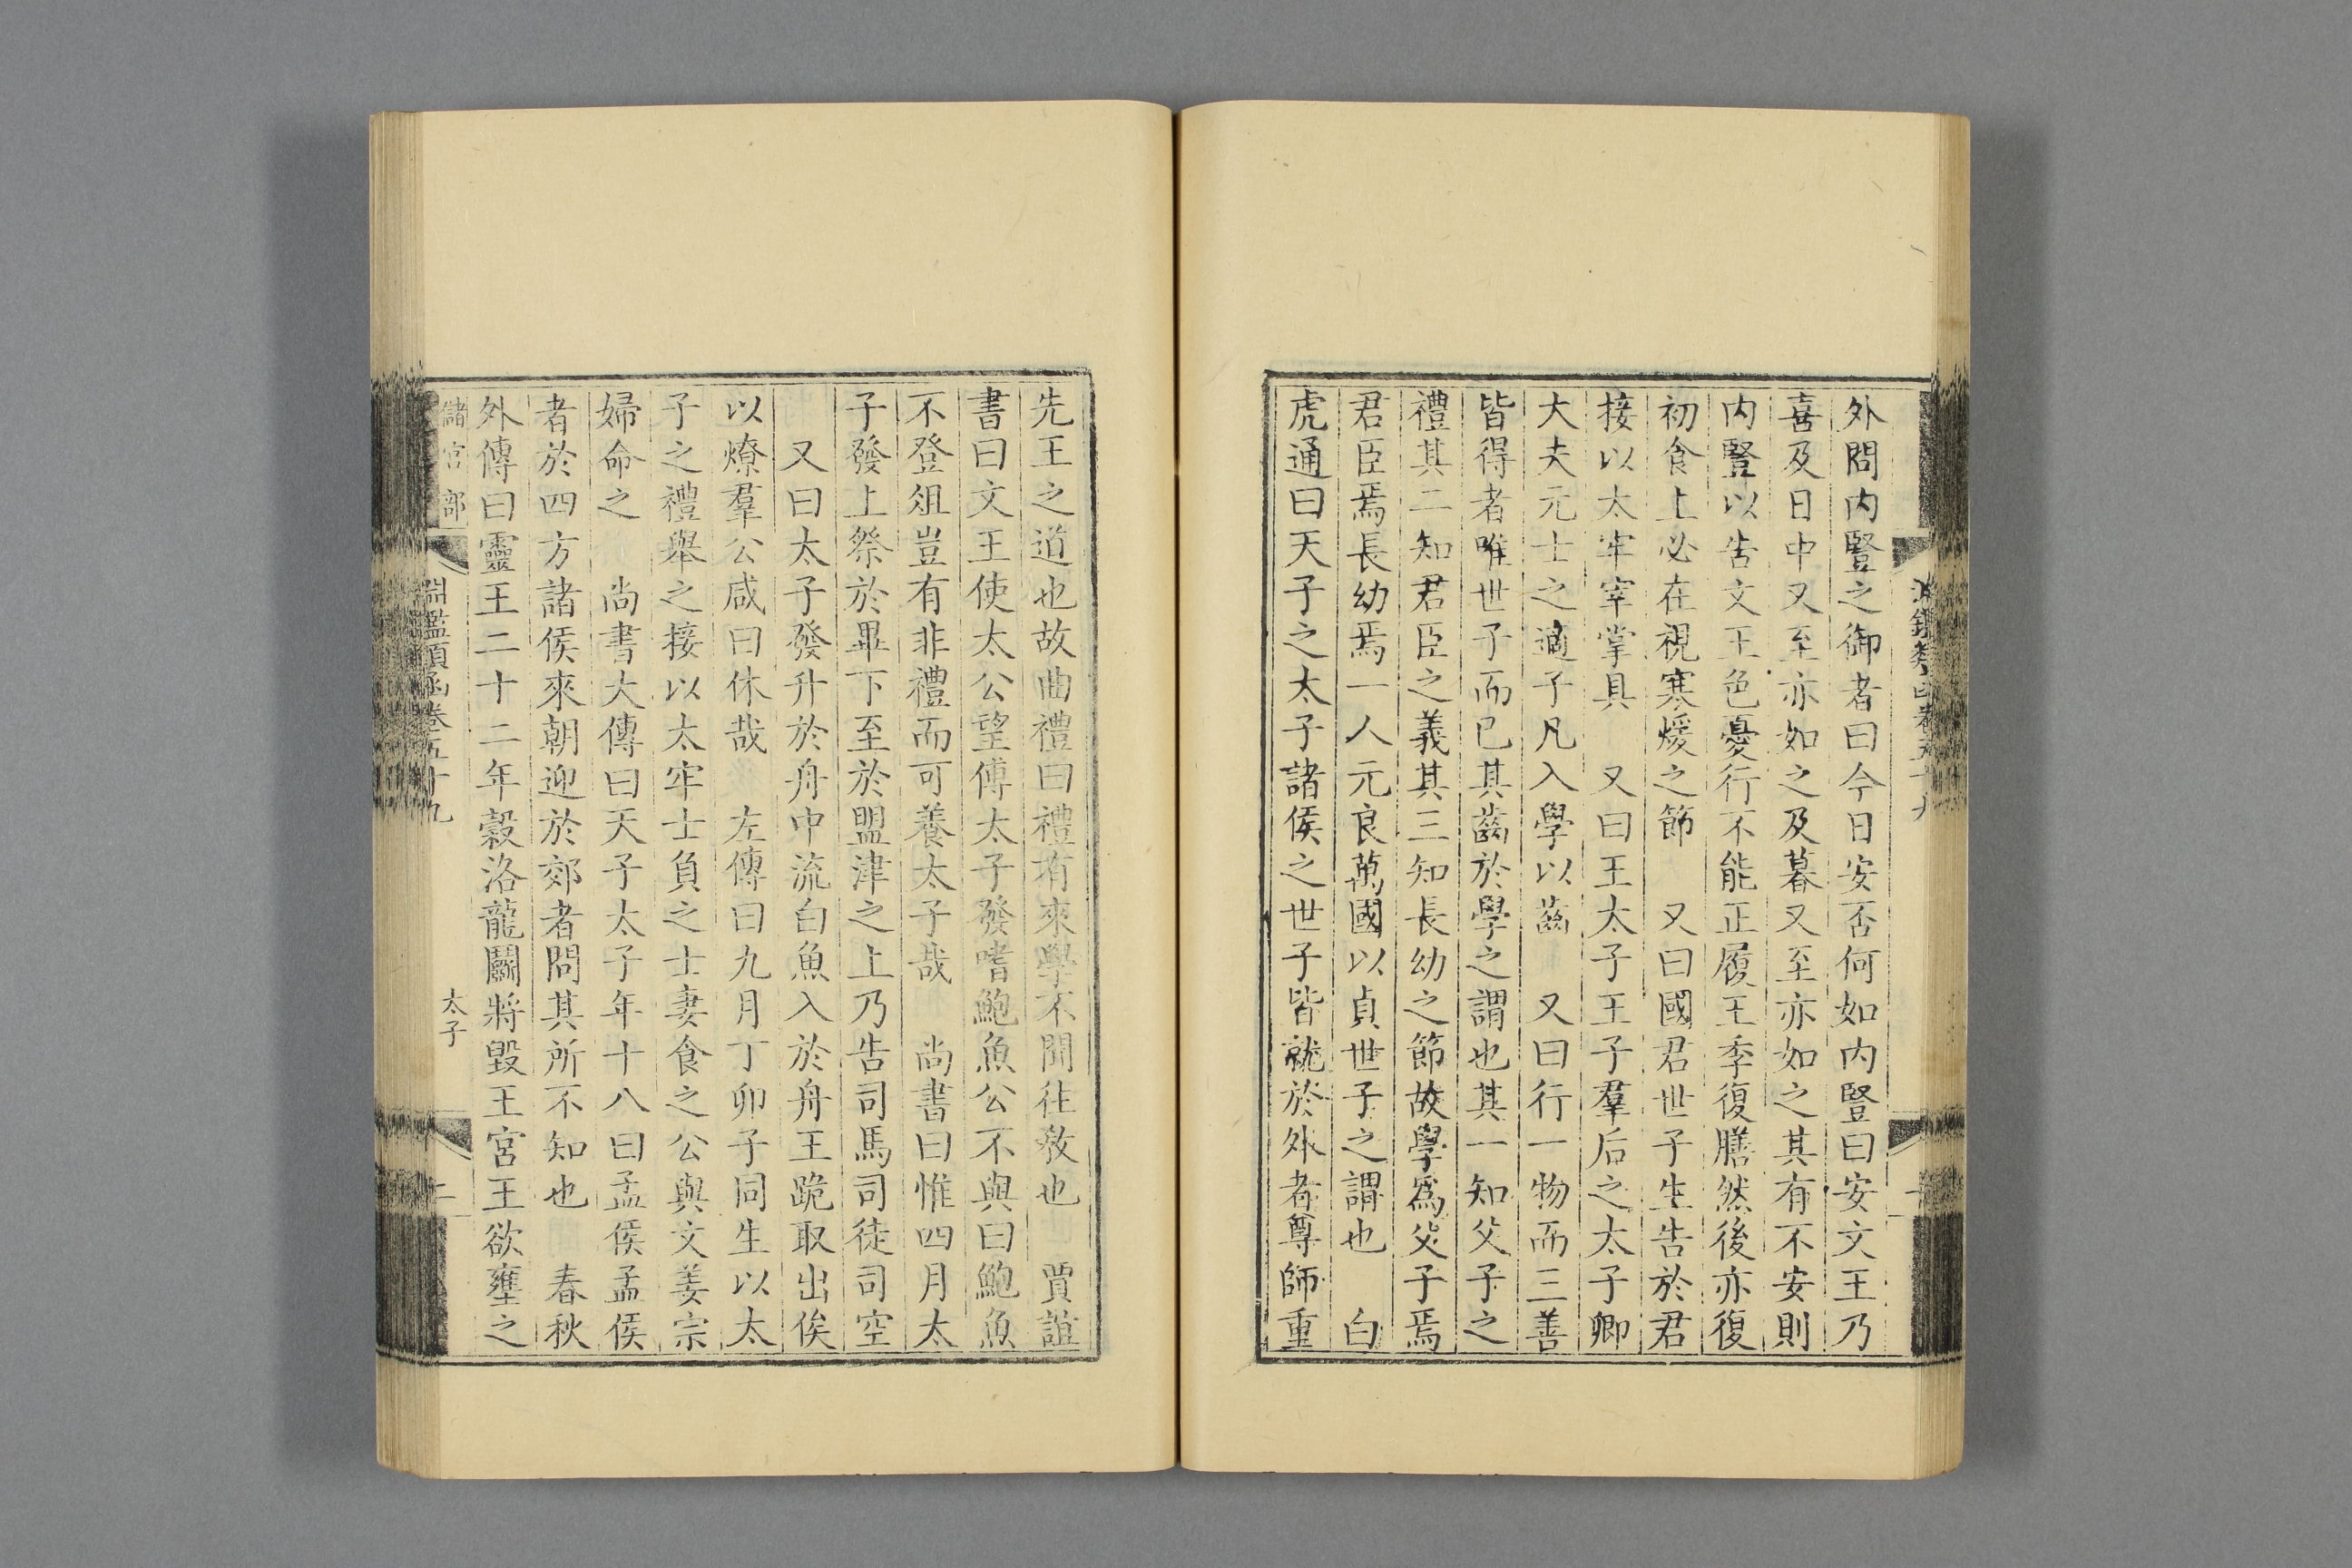 外問内豎之御者曰今日安否何如内豎曰安文王乃
喜及日中又至亦如之及暮又至亦如之其有不安則
内豎以告文王色憂行不能正履王季復膳然後亦復
初食上必在視寒煖之節　又曰國君世子生告於君
接以太牢宰掌具　又曰王太子王子羣后之太子卿
大夫元士之適子凡入學以齒　又曰行一物而三善
皆得者唯世子而已其齒於學之謂也其一知父子之
禮其二知君臣之義其三知長幼之節故學為父子焉
君臣焉長幼焉一人元良萬國以貞世子之謂也　白
虎通曰天子之太子諸侯之世子皆就於外者尊師重
先王之道也故曲禮曰禮有來學不聞往教也　賈誼
書曰文王使太公望傅太子發嗜鮑魚公不與曰鮑魚
不登俎豈有非禮而可養太子哉　尚書曰惟四月太
子發上祭於畢下至於盟津之上乃告司馬司徒司空
又曰太子發升於舟中流白魚入於舟王跪取出俟
以燎羣公咸曰休哉　左傳曰九月丁卯子同生以太
子之禮舉之接以太牢士負之士妻食之公與文姜宗
婦命之　尚書大傳曰天子太子年十八曰孟侯孟侯
者於四方諸侯來朝迎於郊者問其所不知也　春秋
外傳曰靈王二十二年穀洛龍鬬將毀王宮王欲壅之
儲宮部
淵鑑類函卷五十九
太子
二